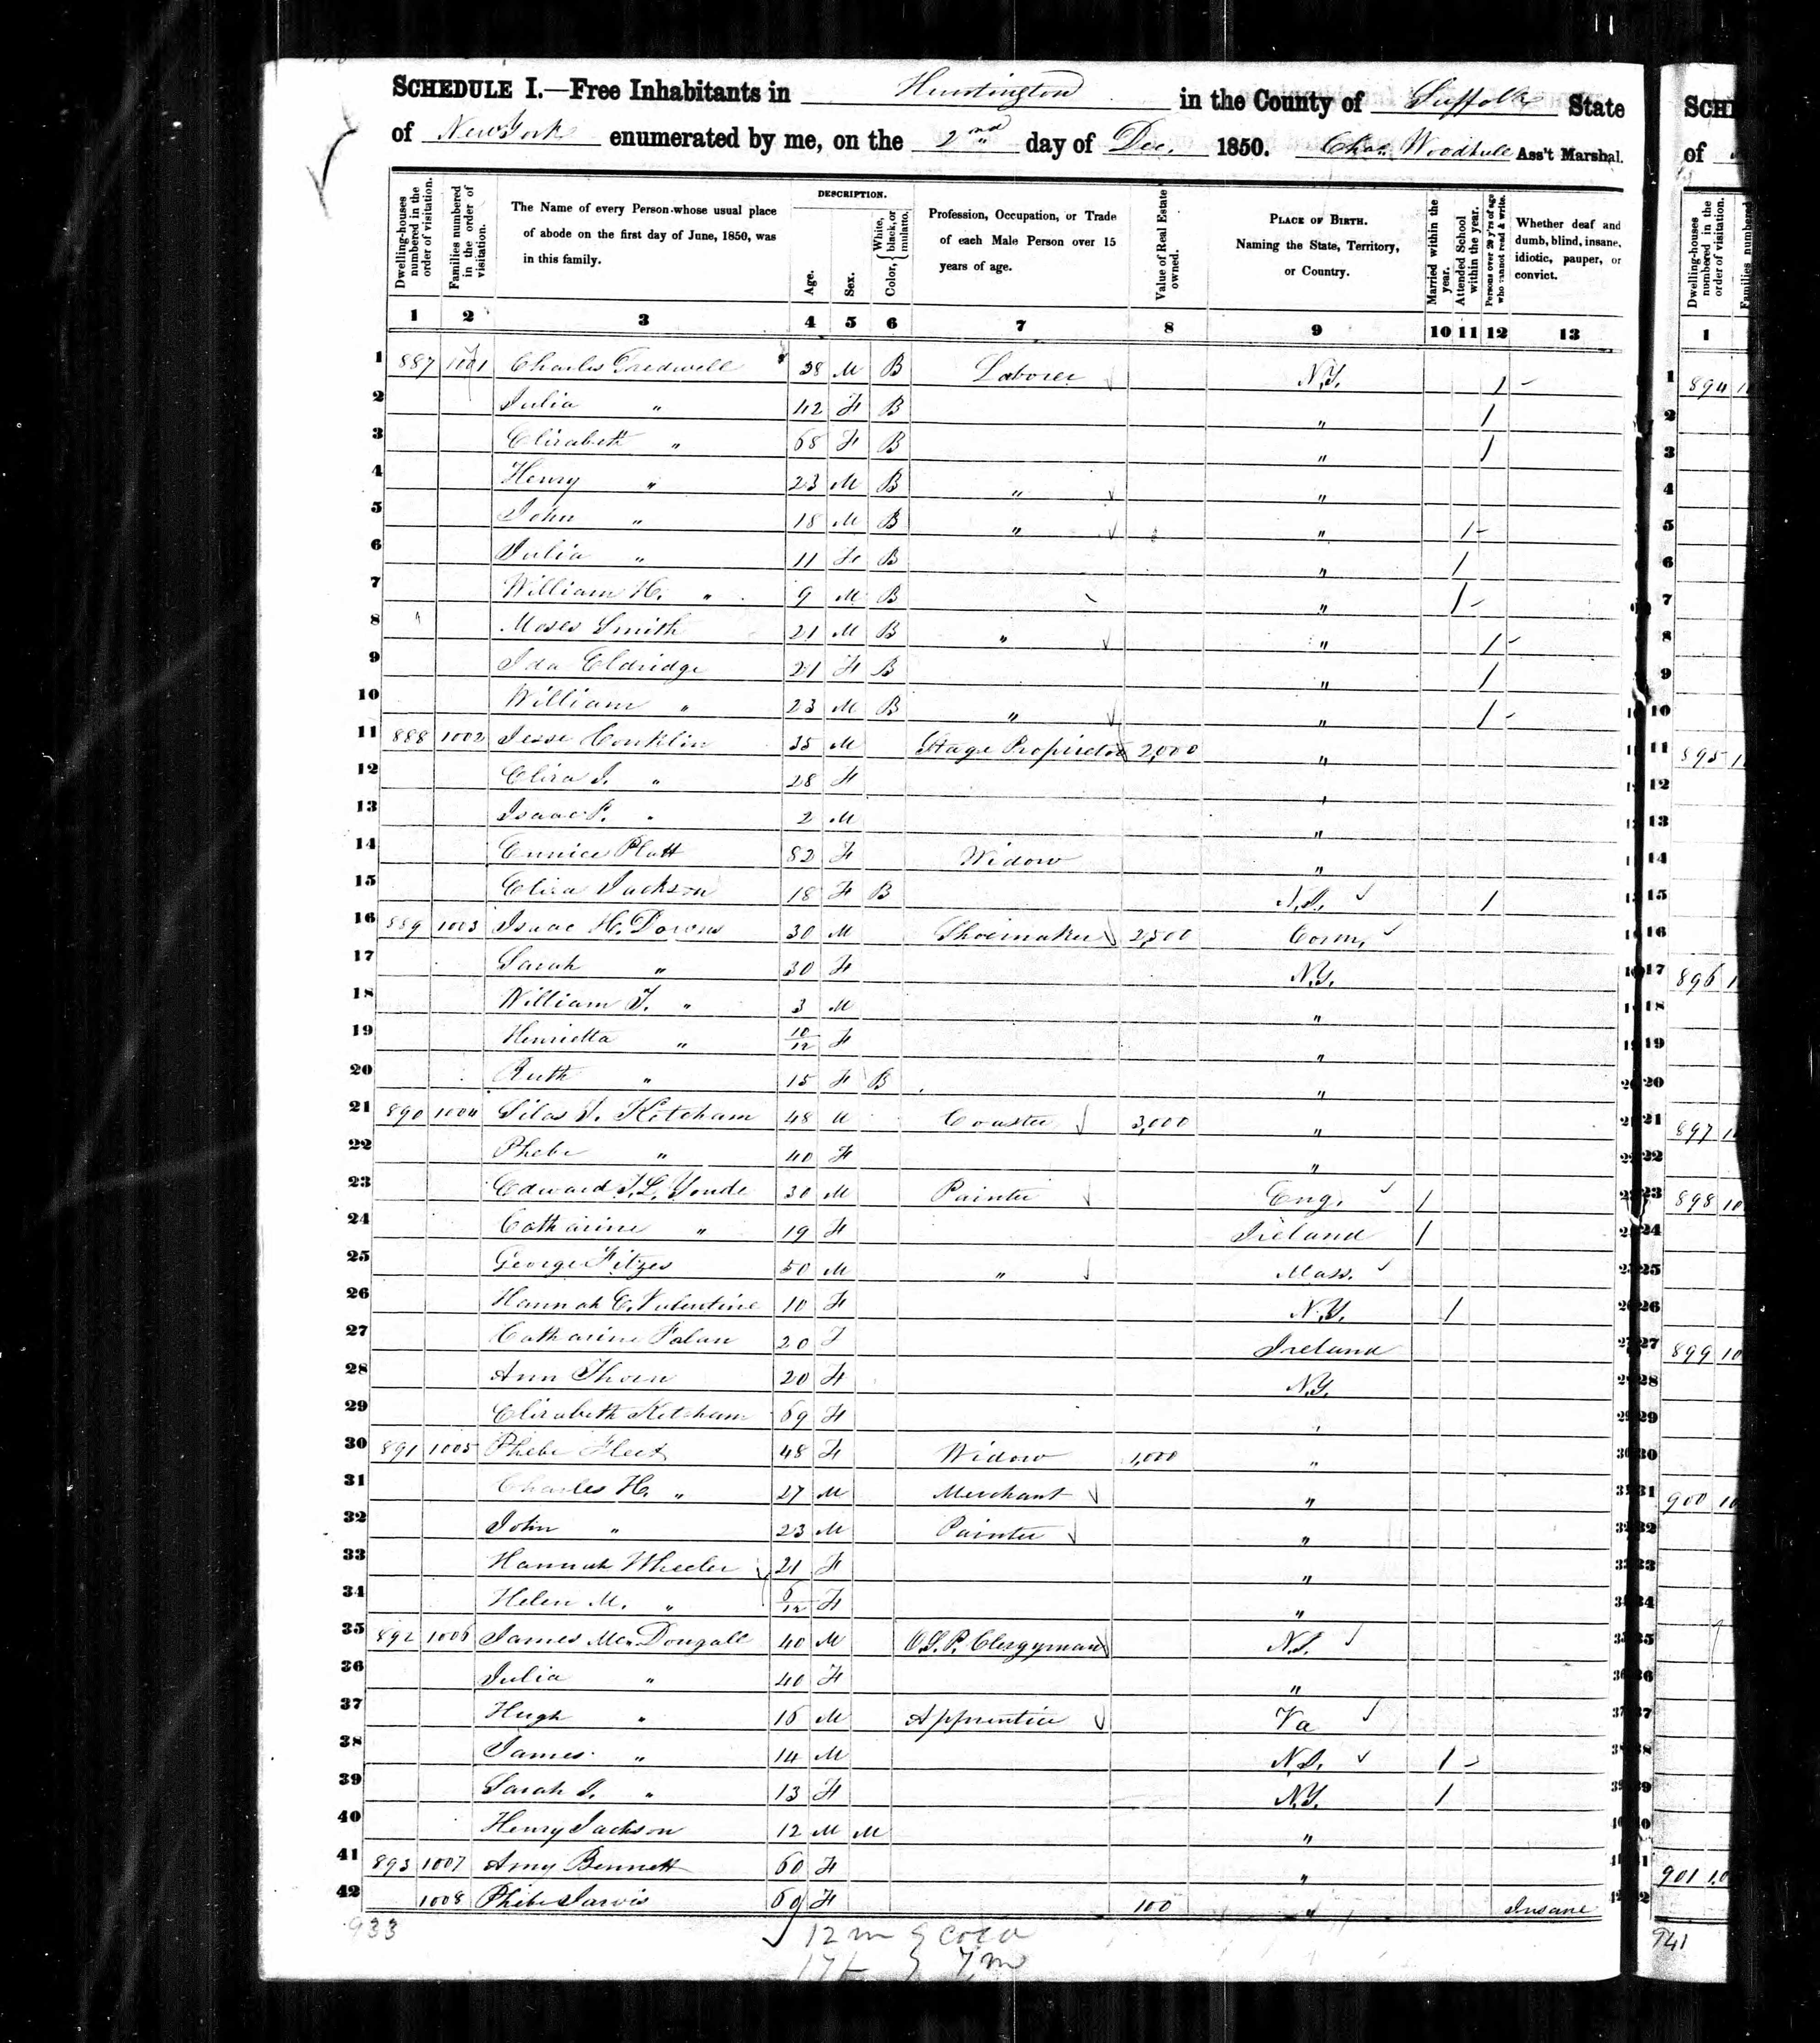 SCHEDULE I.—Free Inhabitants in Huntington in the County of Suffolk State
of New York enumerated by me, on the 2nd day of Dec. 1850. Chas. Woodhule Ass't Marshal.
Dwelling-houses numbered in the order of visitation. Families numbered in the order of visitation. The Name of every Person whose usual place of abode on the first day of June, 1850, was in this family. DESCRIPTION. Age. Sex. Color, { White, black, or mulatto. Profession, Occupation, or Trade of each Male Person over 15 years of age. Value of Real Estate owned. PLACE OF BIRTH. Naming the State, Territory, or Country. Married within the year. Attended School within the year. Persons over 20 y'rs of age who cannot read & write. Whether deaf and dumb, blind, insane, idiotic, pauper, or convict.
1 2 3 4 5 6 7 8 9 10 11 12 13
1 887 1001 Charles Tredwell 38 M B Laborer N.Y. 1
2 Julia " 42 F B " 1
3 Elizabeth " 68 F B " 1
4 Henry " 23 M B " "
5 John " 18 M B " " 1
6 Julia " 11 F B " 1
7 William H. " 9 M B " 1
8 Moses Smith 21 M B " " 1
9 Ida Eldridge 21 F B " 1
10 William " 23 M B " " 1
11 888 1002 Jesse Conklin 35 M Stage Proprietor 2,000 "
12 Eliza J. " 28 F "
13 Isaac P. " 2 M "
14 Eunice Platt 82 F Widow "
15 Eliza Jackson 18 F B N.J. 1
16 889 1003 Isaac H. Downs 30 M Shoemaker 2,500 Conn.
17 Sarah " 30 F N.Y.
18 William T. " 3 M "
19 Henrietta " 10/12 F "
20 Ruth " 15 F B "
21 890 1004 Silas J. Ketcham 48 M Coaster 3,000 "
22 Phebe " 40 F "
23 Edward J.L. Youde 30 M Painter Eng. 1
24 Catharine " 19 F Ireland 1
25 George Fitzes 50 M " Mass.
26 Hannah C. Valentine 10 F N.Y. 1
27 Catharine Falan 20 F Ireland
28 Ann Thorn 20 F N.Y.
29 Elizabeth Ketcham 69 F "
30 891 1005 Phebe Fleet 48 F Widow 1,000 "
31 Charles H. " 27 M Merchant "
32 John " 23 M Painter "
33 Hannah Wheeler 21 F "
34 Helen M. " 6/12 F "
35 892 1006 James Mc.Dougall 40 M O.S.P. Clergyman N.J.
36 Julia " 40 F "
37 Hugh " 16 M Apprentice Va
38 James " 14 M N.J. 1
39 Sarah J. " 13 F N.Y. 1
40 Henry Jackson 12 M M "
41 893 1007 Amy Bennett 60 F "
42 1008 Phebe Jarvis 69 F 100 " Insane
933
12 m 9 cold
17 f 7 m
SCH
of
Dwelling-houses numbered in the order of visitation. Families numbered
1
1 894
2
3
4
5
6
7
8
9
10
11 895
12
13
14
15
16
17 896
18
19
20
21 897
22
23 898 10
24
25
26
27 899 10
28
29
30
31 900 10
32
33
34
35
36
37
38
39
40
41 901 10
42
941